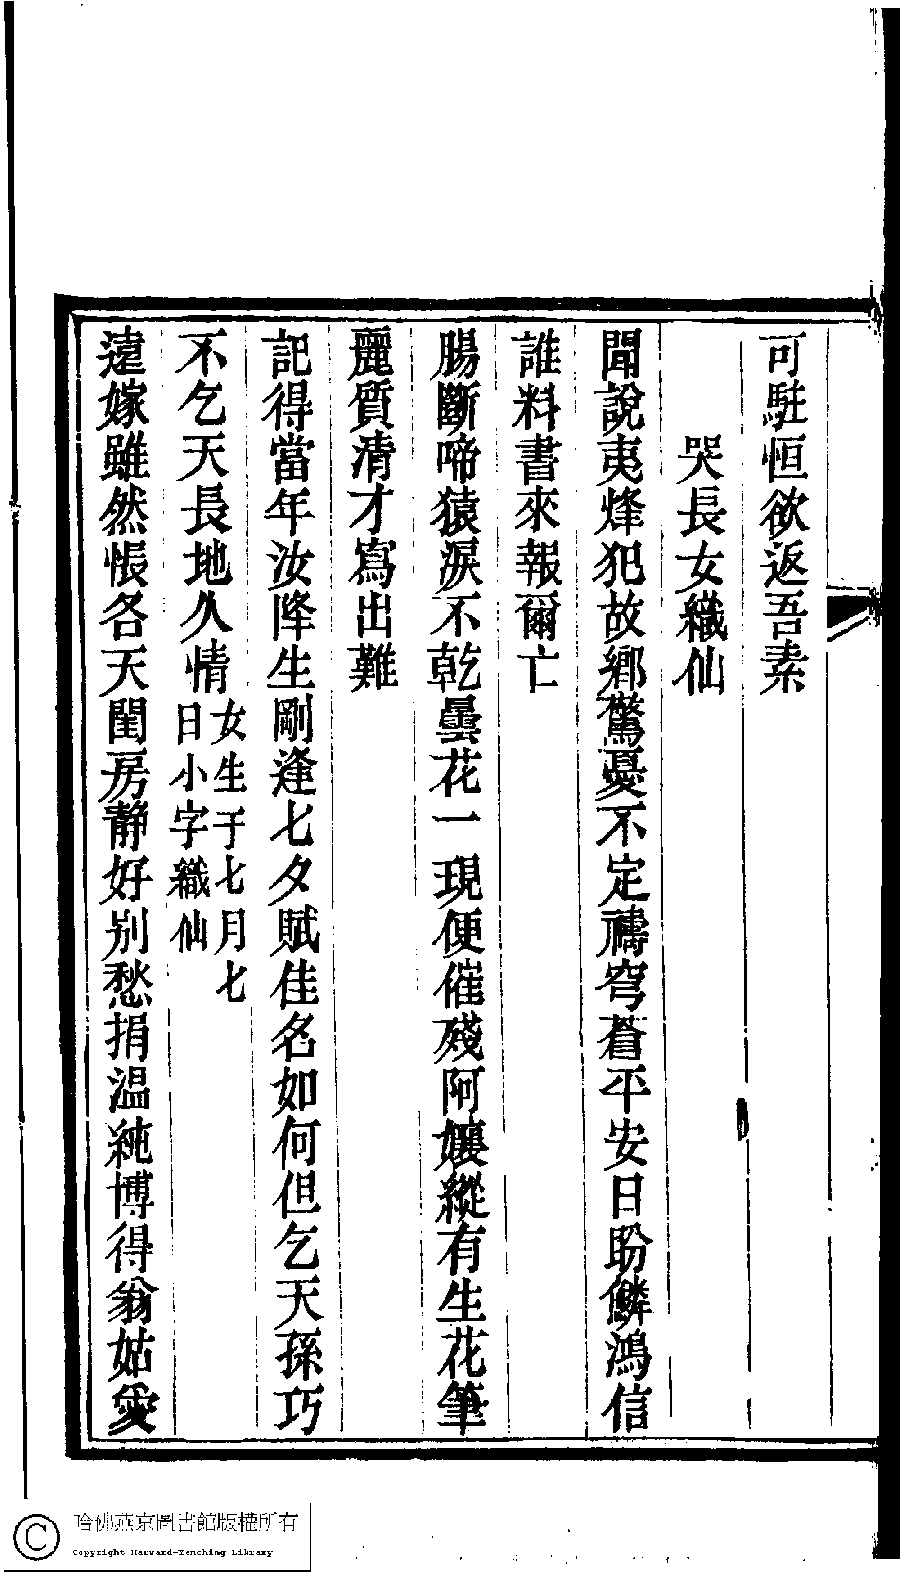 可駐恒欲返吾素
哭長女織仙
聞說夷烽犯故鄉驚憂不定禱穹蒼平安日盼鱗鴻信
誰料書來報爾亡
腸斷啼猿淚不乾曇花一現便催殘阿孃縱有生花筆
麗質清才寫出難
記得當年汝降生剛逢七夕賦佳名如何但乞天孫巧
不乞天長地久情女生于七月七
日小字織仙
遠嫁雖然悵各天閨房靜好別愁捐温純博得翁姑愛
哈佛燕京圖書館版權所有
Copyright Harvard-Yenching Library